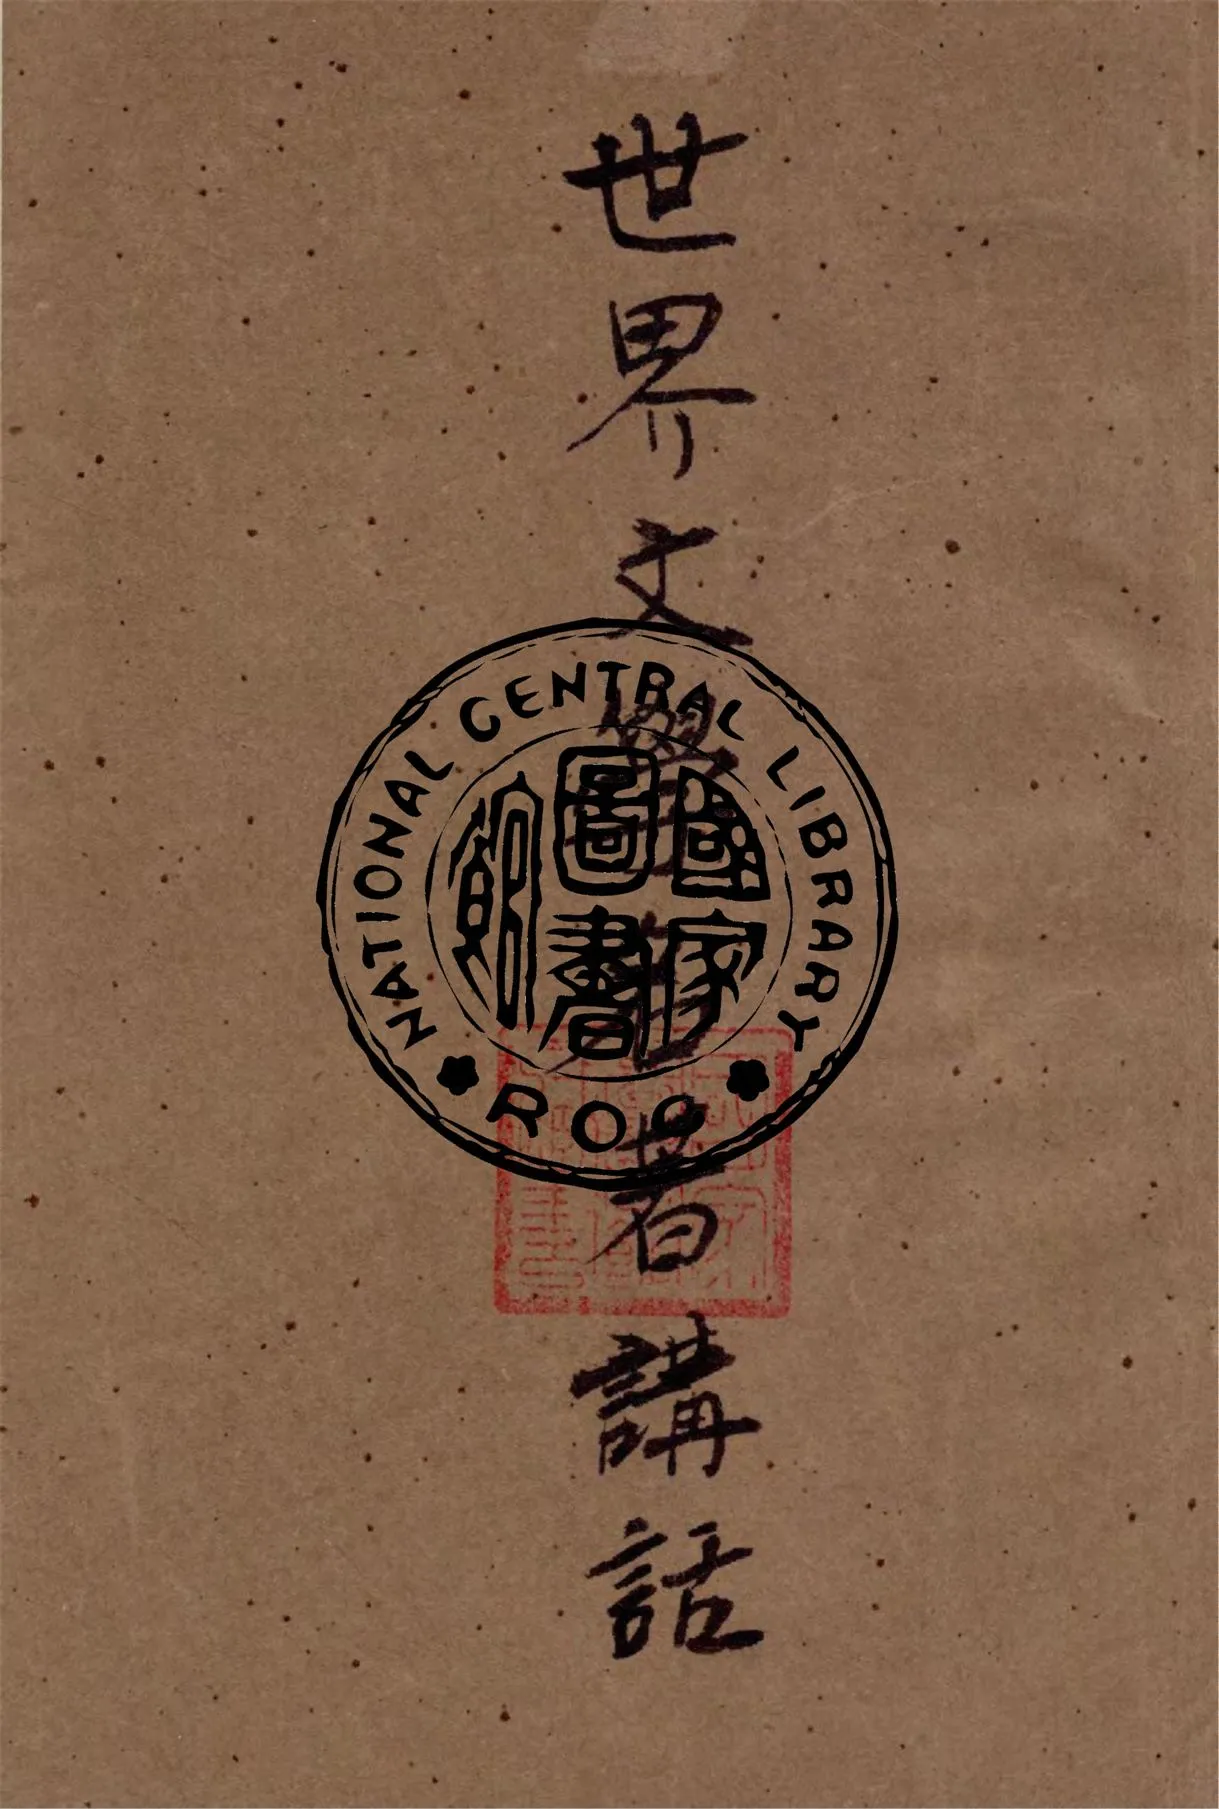 世界文學名著講話
NATIONAL CENTRAL LIBRARY
國家圖書館
ROC